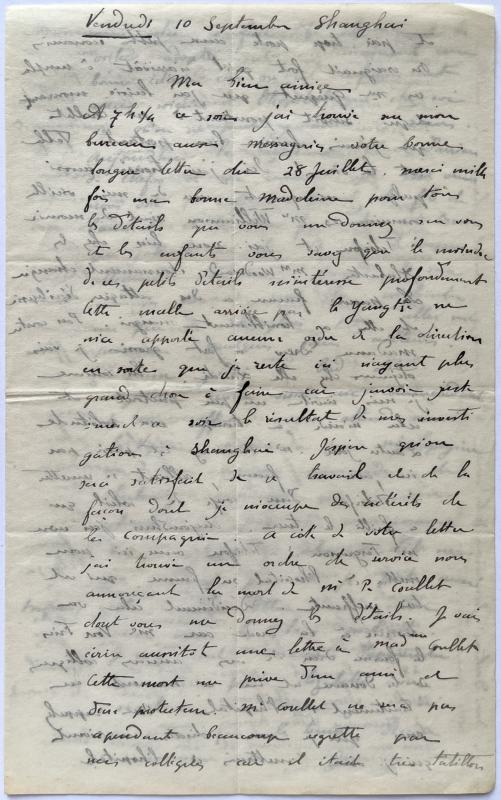 Vendredi 10 September Shanghai
Ma bien amiée
A 7h 1/4 ce soir j'ai trouvé au mon
bureau aux messageries votre bonne
longue lettre du 28 Juillet. merci mille
fois ma bonne Madeleine pour tous
les détails que vous me donnez sur vous
et les enfants vous savez que le moindre
de ces petits détails m'intéresse profondément
Cette malle arrivée par le Yangtsé ne
m'a apporté aucun ordre de la direction
en sorte que je reste ici n'ayant plus
grand chose à faire car j'envoie
ce soir le résultat de mes investi
gations à Shanghai. J'espère qu'on
sera satisfait de ce travail et de la
façon dont je m'occupe des intérêts de
la Compagnie. A coté de votre lettre
j'ai trouvé un ordre de service nous
annonçant la mort de Mr P. Coullet
dont vous me donnez les détails. Je vais
écrire aussitôt une lettre à Mad me Coullet
Cette mort me prive d'un ami et
d'un protecteur. Mr Coullet ne sera pas
cependant beaucoup regretté par
mes collègues car il était très tatillon